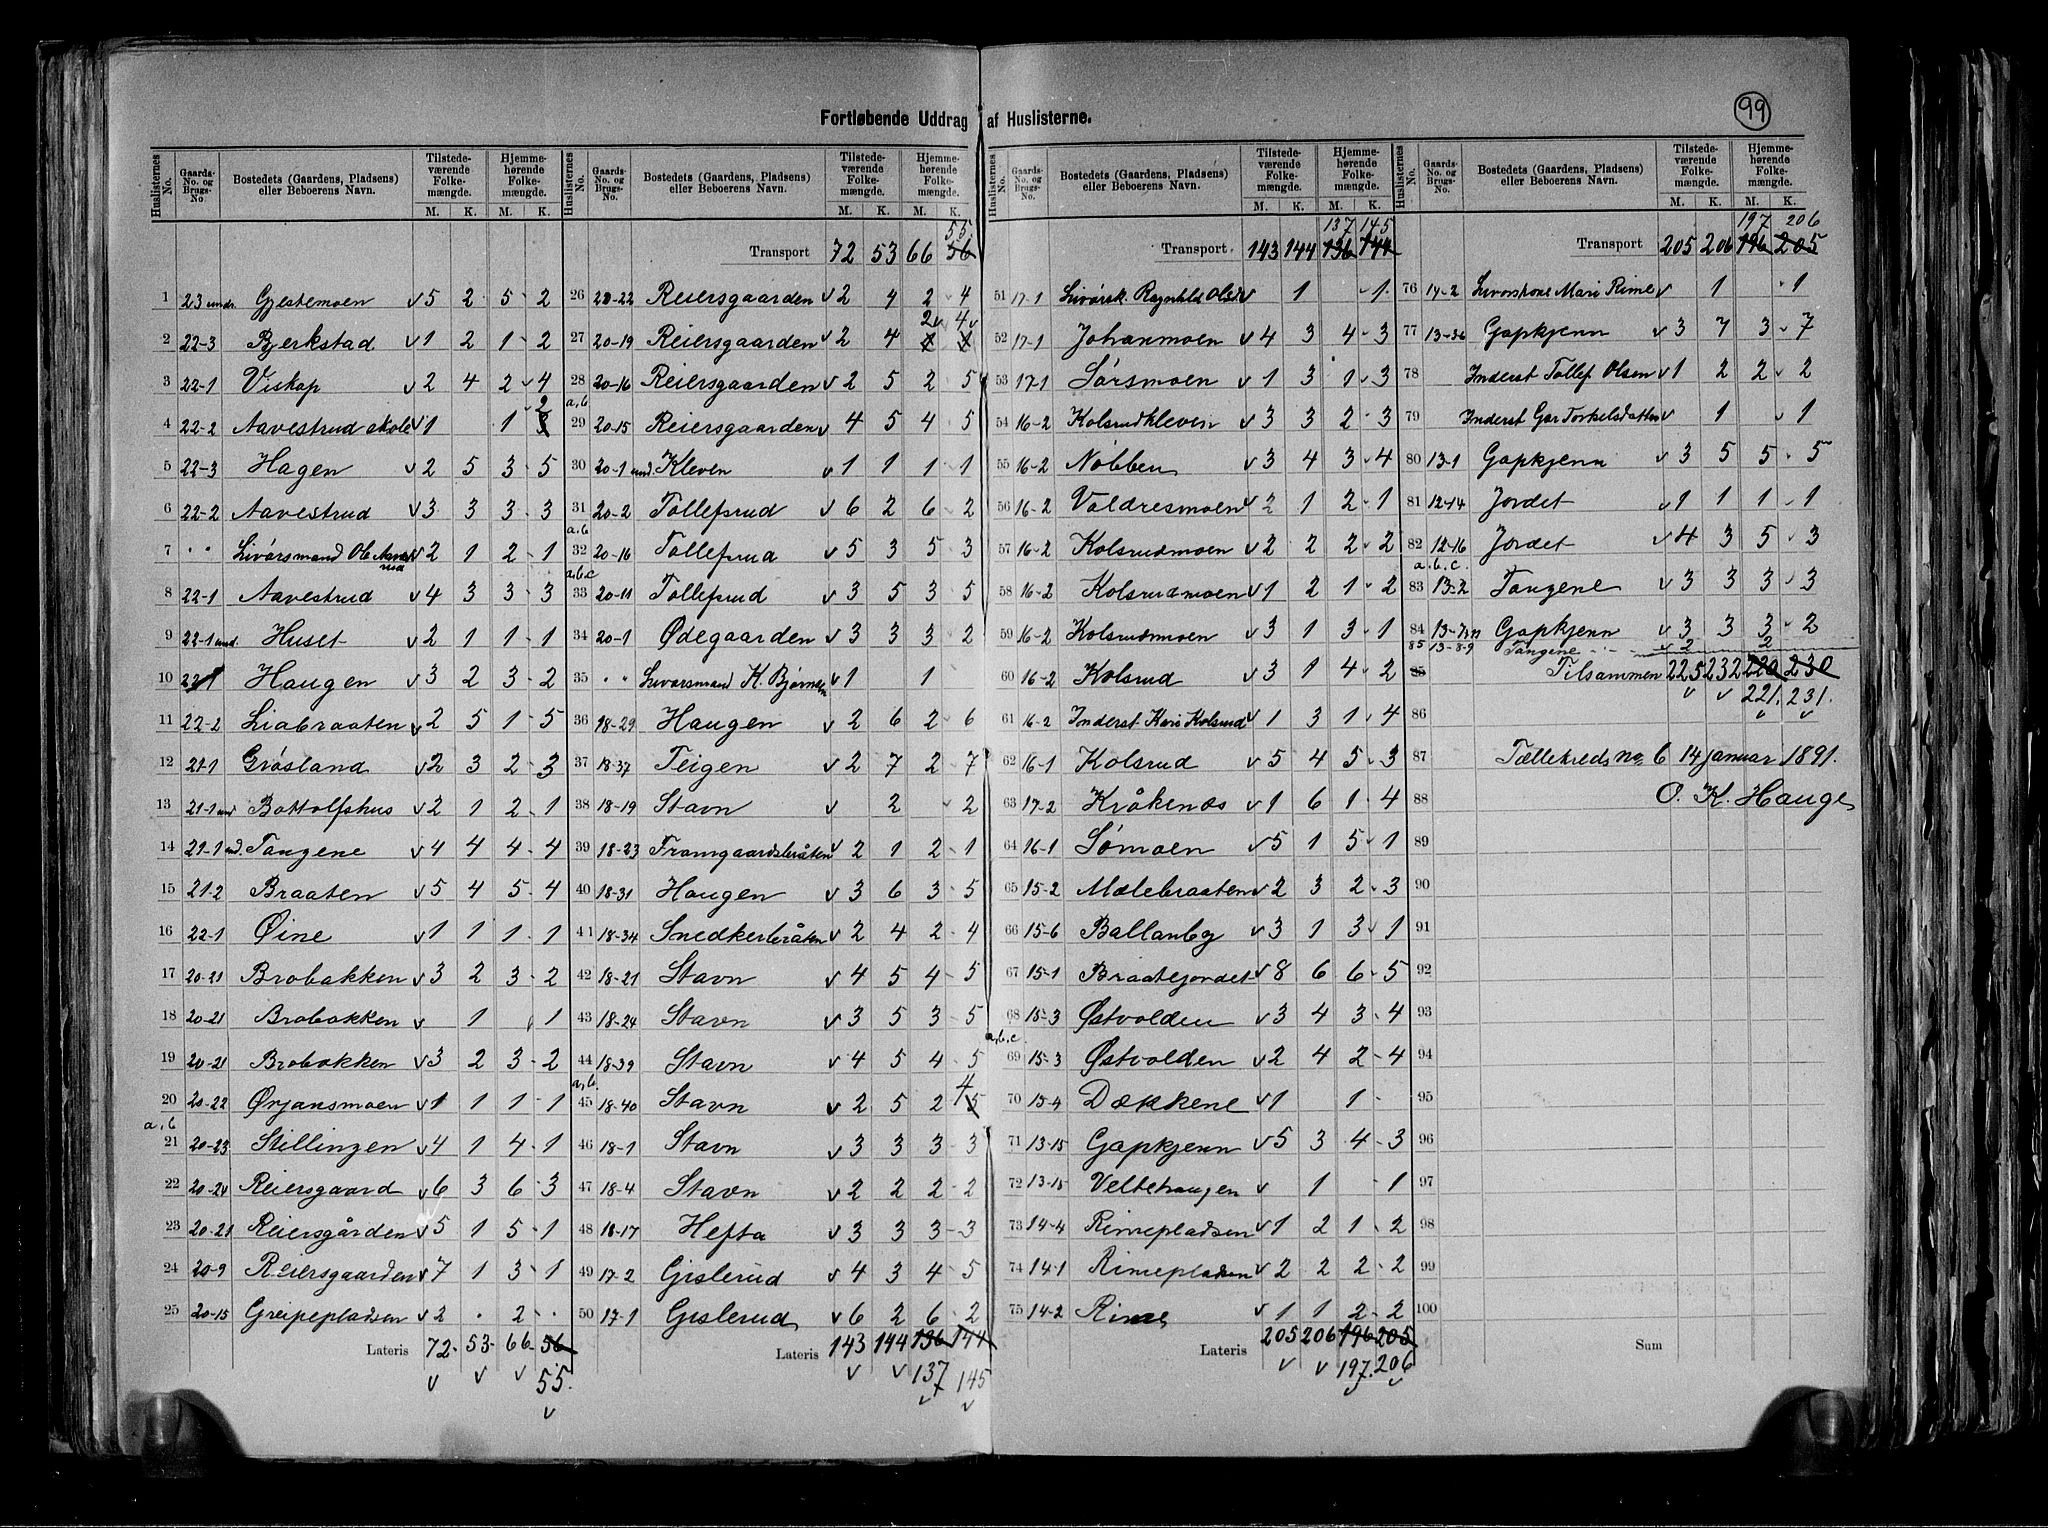 99
Fortløbende Uddrag af Huslisterne.
Huslisternes No. Gaards-No. og Brugs-No. Bostedets (Gaardens, Pladsens) eller Beboerens Navn. Tilstedeværende Folkemængde. M. K. Hjemmehørende Folkemængde. M. K.
1 23 undr. Gjestemoen v 5 2 5 - 2
2 22-3 Bjerkstad v 1 2 1 - 2
3 22-1 Viskop v 2 4 2 v 4
4 22-2 Aavestrud skole v 1 1 - 2 3
5 22-3 Hagen v 2 5 3 - 5
6 22-2 Aavestrud v 3 3 3 - 3
7 " " Livørsmand Ole v 2 1 2 - 1
8 22-1 Aavestrud v 4 3 3 - 3
9 22-1 und. Huset v 2 1 1 - 1
10 22-1 Haugen v 3 2 3 - 2
11 22-2 Liabraaten v 2 5 1 - 5
12 21-1 Grøsland v 2 3 2 - 3
13 21-1 und Bottolfshus v 2 1 2 - 1
14 21-1 und. Tangene v 4 4 4 - 4
15 21-2 Braaten v 5 4 5 - 4
16 22-1 Øine v 1 1 1 - 1
17 20-21 Brobakken v 3 2 3 - 2
18 20-21 Brobakken v 1 1
19 20-21 Brobakken v 3 2 3 - 2
20 20-22 Ørjansmoen v 1 1 1 - 1
a, b
21 20-23 Stillingen v 4 1 4 - 1
22 20-24 Reiersgaard v 6 3 6 - 3
23 20-21 Reiersgården v 5 1 5 - 1
24 20-9 Reiersgaarden v 7 1 3 - 1
25 20-15 Greipepladsen v 2 . 2 - .
Lateris 72 - 53 - 66 - 56
v v v 55.
v
Huslisternes No. Gaards-No. og Brugs-No. Bostedets (Gaardens, Pladsens) eller Beboerens Navn. Tilstedeværende Folkemængde. M. K. Hjemmehørende Folkemængde. M. K.
55.
Transport 72 53 66 56
26 20-22 Reiersgaarden v 2 4 2 - 4
2 v 4 v
27 20-19 Reiersgaarden v 2 4
28 20-16 Reiersgaarden v 2 5 2 - 5
a, b
29 20-15 Reiersgaarden v 4 5 4 - 5
30 20-1 und. Kleven v 1 1 1 - 1
31 20-2 Tollefsrud v 6 2 6 - 2
a, b
32 20-16 Tollefsrud v 5 3 5 - 3
a, b, c
33 20-11 Tollefsrud v 3 5 3 - 5
34 20-1 Ødegaarden v 3 3 3 - 2
35 " " Livørsmand K. v 1 1
36 18-29 Haugen v 2 6 2 - 6
37 18-37 Teigen v 2 7 2 - 7
38 18-19 Stavn v 2 v 2
39 18-23 Framgaardsbråten v 2 1 2 - 1
40 18-31 Haugen v 3 6 3 - 5
41 18-34 Snedkerbråten v 2 4 2 - 4
42 18-21 Stavn v 4 5 4 - 5
43 18-24 Stavn v 3 5 3 - 5
44 18-39 Stavn v 4 5 4 - 5
a, b. 4
45 18-40 Stavn v 2 5 2 5
46 18-1 Stavn v 3 3 3 - 3
47 18-4 Stavn v 2 2 2 - 2
48 18-17 Hefta v 3 3 3 - 3
49 17-2 Gislerud v 4 3 4 - 5
50 17-1 Gislerud v 6 2 6 - 2
Lateris 143 144 136 144
v v 137 145
v v
Huslisternes No. Gaards-No. og Brugs-No. Bostedets (Gaardens, Pladsens) eller Beboerens Navn. Tilstedeværende Folkemængde. M. K. Hjemmehørende Folkemængde. M. K.
137 145
Transport 143 144 136 144
51 17-1 Livørsk. Ragnhild v 1 - 1
52 17-1 Johanmoen v 4 3 4 - 3
53 17-1 Lørsmoen v 1 3 1 - 3
54 16-2 Kolsrudkleven v 3 3 2 - 3
55 16-2 Nobben v 3 4 3 v 4
56 16-2 Valdresmoen v 2 1 2 - 1
57 16-2 Kolsrudmoen v 2 2 2 - 2
58 16-2 Kolsrudmoen v 1 2 1 - 2
59 16-2 Kolsrudmoen v 3 1 3 - 1
60 16-2 Kolsrud v 3 1 4 - 2
61 16-2 Inderst Kari Kolsrud v 1 3 1 - 4
62 16-1 Kolsrud v 5 4 5 - 3
63 17-2 Kråkenæs v 1 6 1 - 4
64 16-1 Sømoen v 5 1 5 - 1
65 15-2 Mælebraaten v 2 3 2 - 3
66 15-6 Ballanby v 3 1 3 - 1
67 15-1 Braatejordet v 8 6 6 - 5
68 15-3 Østvolden v 3 4 3 - 4
a, b, c
69 15-3 Østvolden v 2 4 2 - 4
70 15-4 Dækkene v 1 1 -
71 13-15 Gapkjenn v 5 3 4 - 3
72 13-15 Veltehaugen v 1 - 1
73 14-4 Rimepladsen v 1 2 1 - 2
74 14-1 Rimepladsen v 2 2 2 - 2
75 14-2 Rime v 1 1 2 - 2
Lateris 205 206 196 205
v v 197. 206
v v
Huslisternes No. Gaards-No. og Brugs-No. Bostedets (Gaardens, Pladsens) eller Beboerens Navn. Tilstedeværende Folkemængde. M. K. Hjemmehørende Folkemængde. M. K.
197 206
Transport 205 206 196 205
76 14-2 Mari Rime v 1 - 1
77 13-36 Gapkjenn v 3 7 3 - 7
78 Inderst Tollef Olsen v 1 2 2 - 2
79 Inderst Gro Torkelsdatter v 1 v 1
80 13-1 Gapkjenn v 3 5 5 - 5
81 12-14 Jordet v 1 1 1 - 1
82 12-16 Jordet v 4 3 5 - 3
a. b. c.
83 13-2 Tangene v 3 3 3 - 3
84 13-7 Gapkjenn v 3 3 3 - 2
85 13-8-9 Tangene v 2 2
85 Tilsammen 225 232 220 230
v v 221. 231.
86 v v
87 Tællekreds no 6 14 januar 1891.
88 O. K. Hauge
89
90
91
92
93
94
95
96
97
98
99
100
Sum